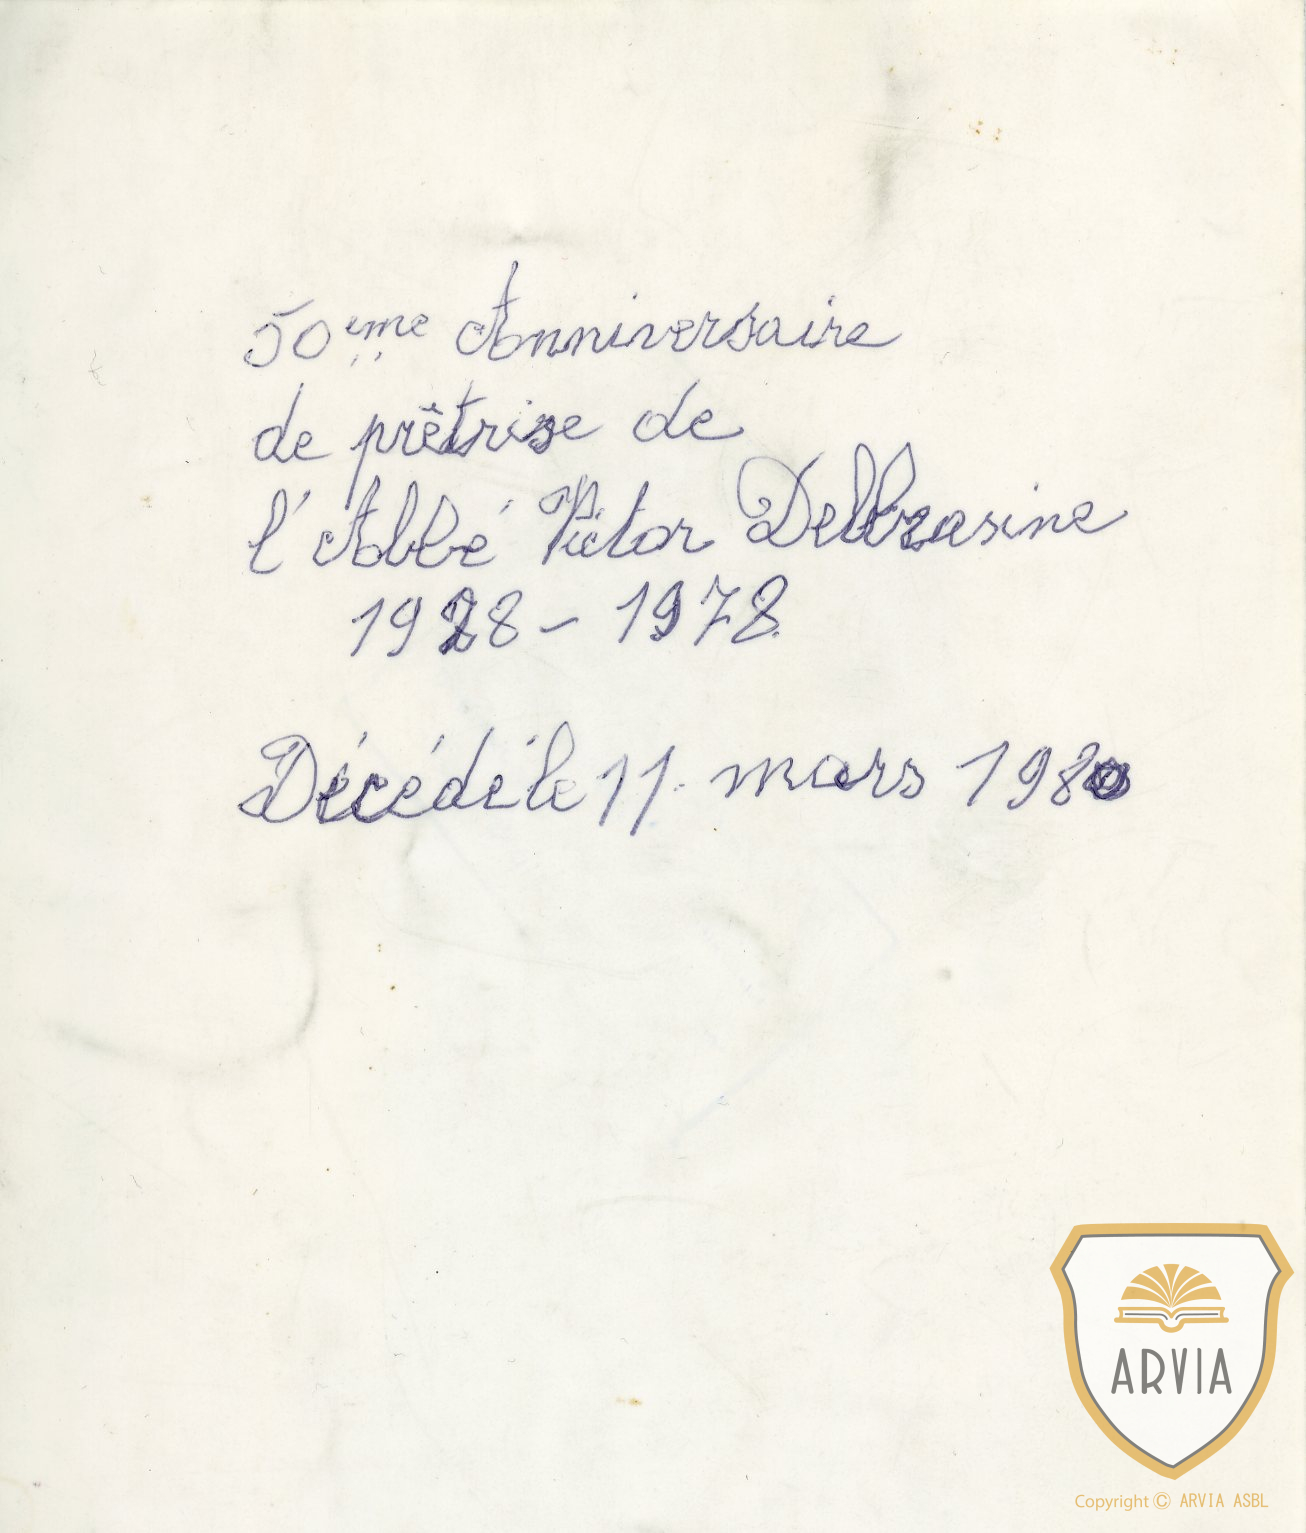 50ème Anniversaire
de prêtrise de
l'Abbé Victor Delbrasine
1928 - 1978.
Décédé le 11 mars 1980
ARVIA
Copyright © ARVIA ASBL